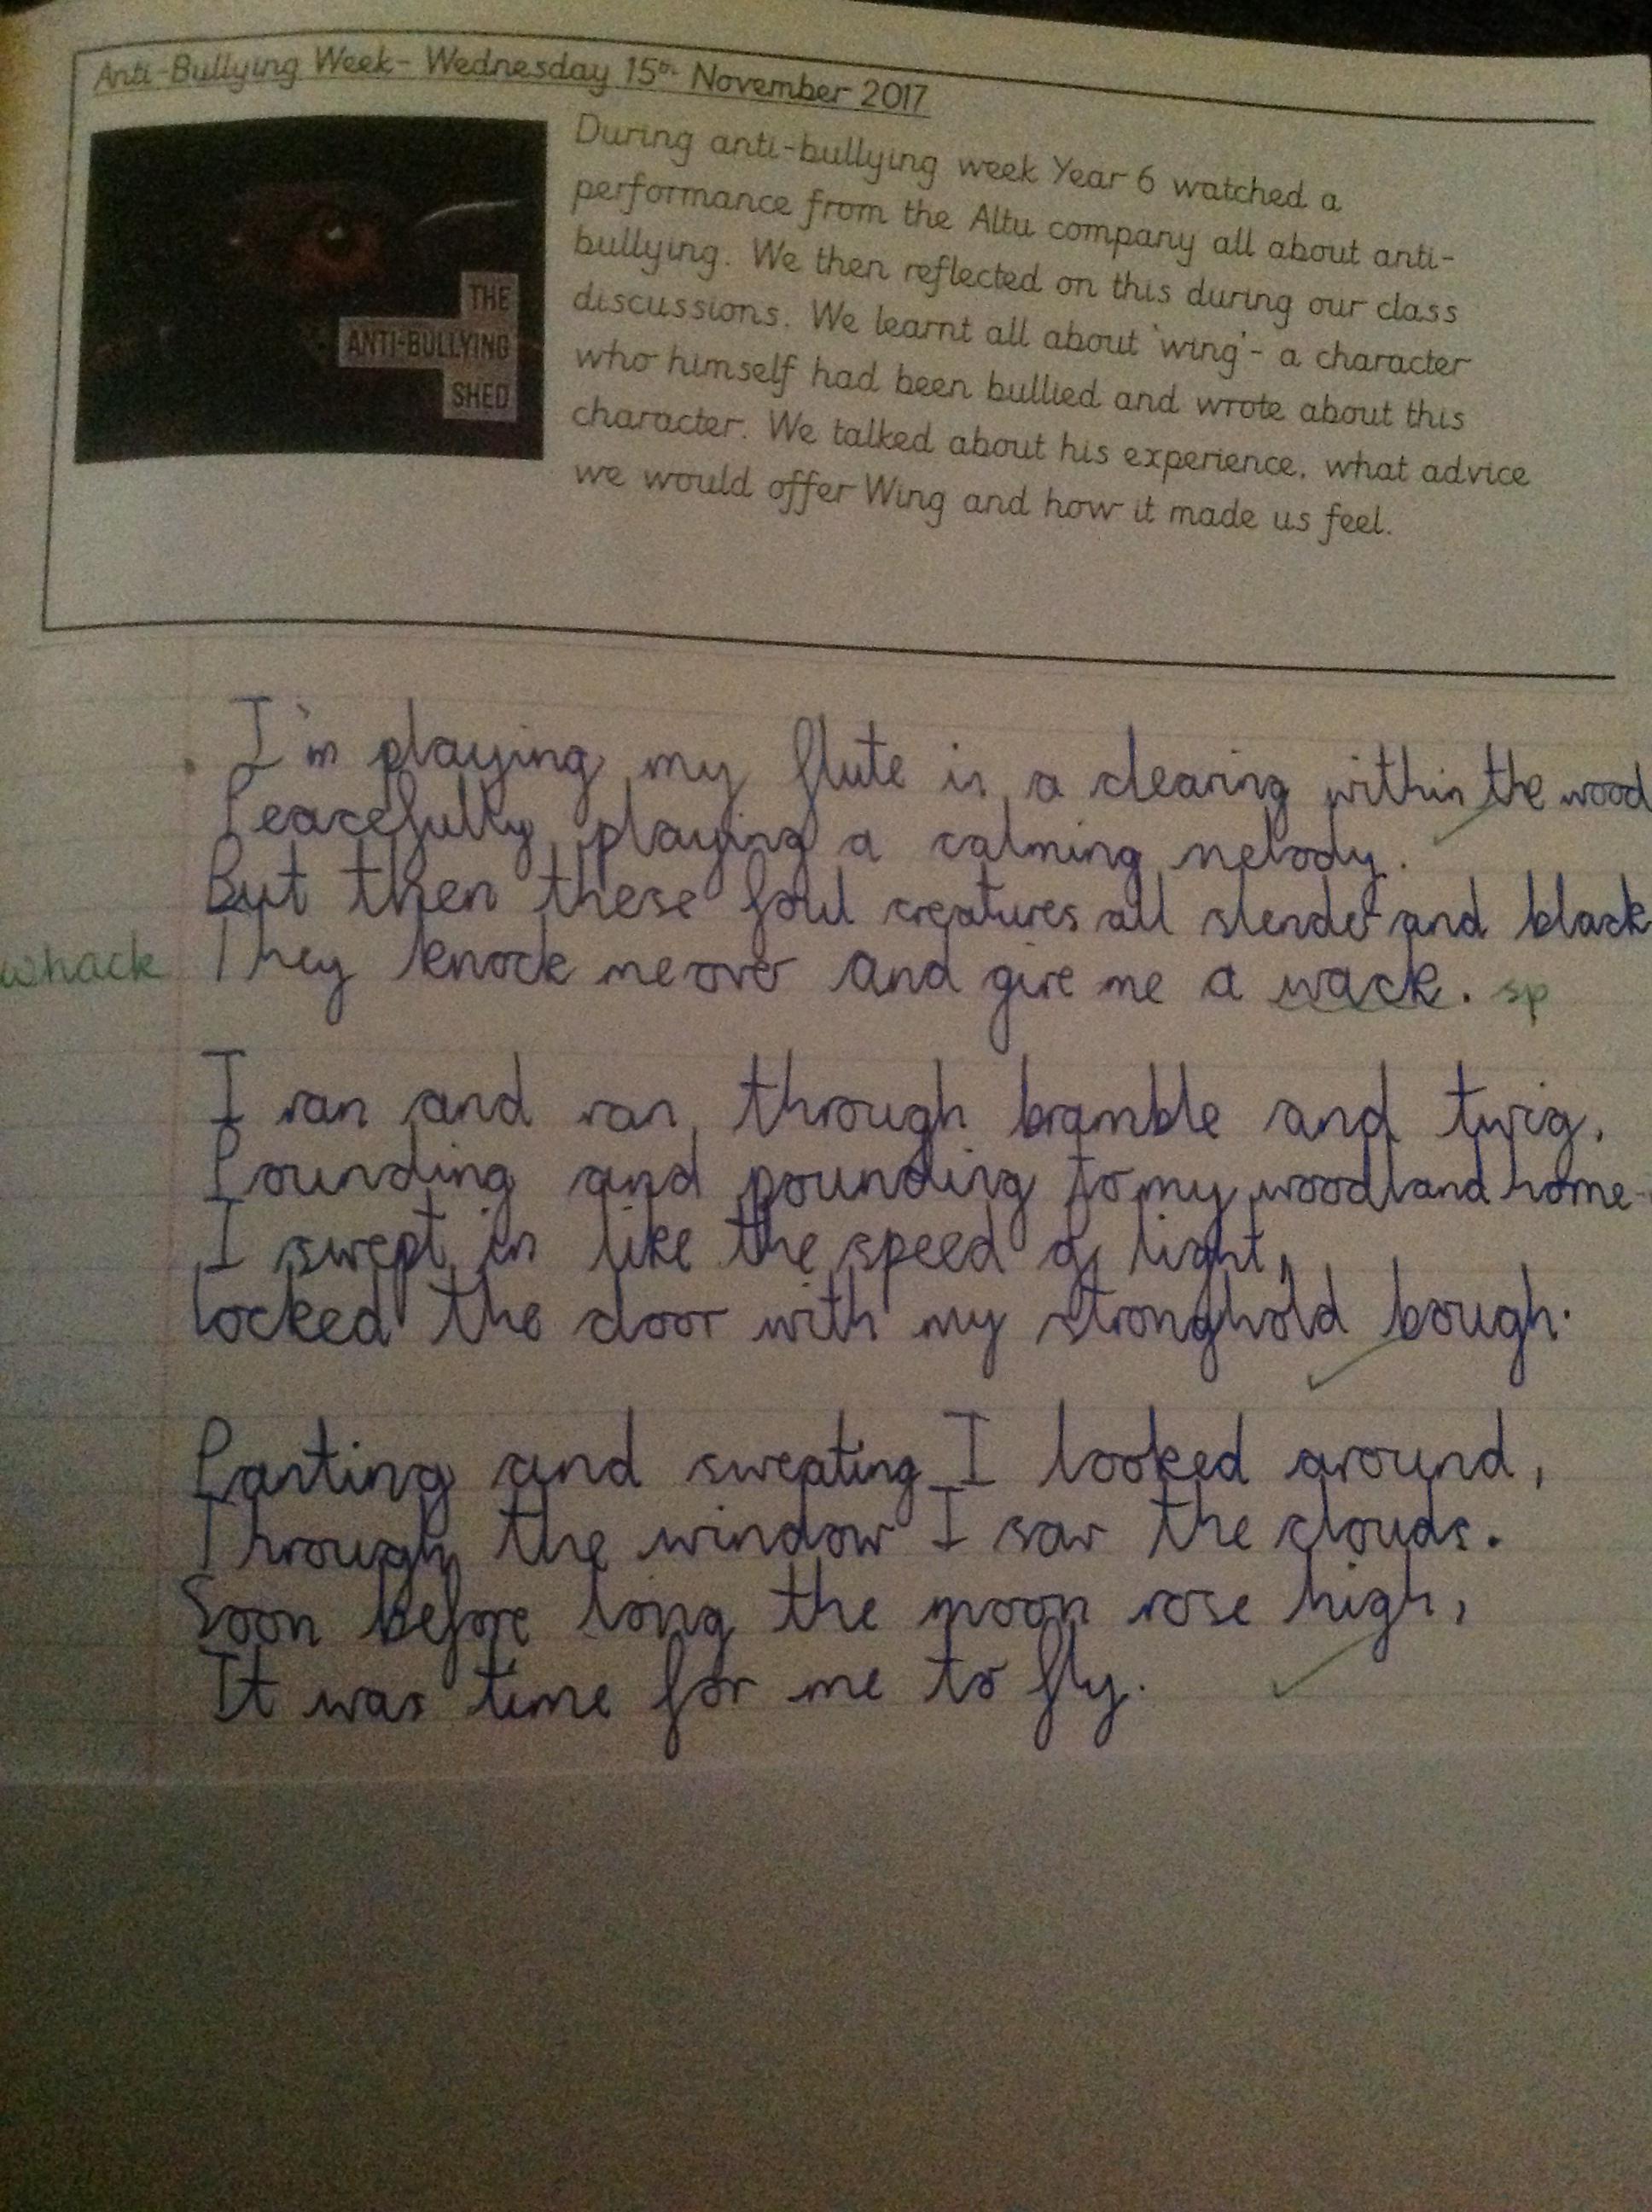 Anti-Bullying Week- Wednesday 15th November 2017
During anti-bullying week Year 6 watched a
performance from the Altu company all about anti-
bullying. We then reflected on this during our class
discussions. We learnt all about 'wing'- a character
who himself had been bullied and wrote about this
character. We talked about his experience, what advice
we would offer Wing and how it made us feel.
THE
ANTI-BULLYING
SHED
I'm playing my flute in a clearing within the wood
Peacefully playing a calming melody.
But then these foul creatures all slender and black
whack They knock me over and give me a wack. sp
I ran and ran, through bramble and twig.
Pounding and pounding to my woodland home-
I swept in like the speed of light,
locked the door with my stronghold bough.
Panting and sweating I looked around,
Through the window I saw the clouds.
Soon before long the moon rose high,
It was time for me to fly.